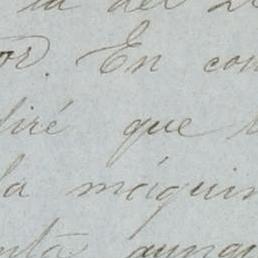 la del
or. En con
diré que
la máquin
nta aunqu